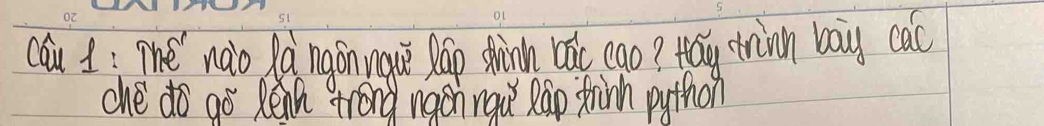 Câu 1: Thế nào là ngôn ngữ lập trình bậc cao? Hãy trình bày các
chế độ gõ lệnh trong ngôn ngữ lập trình python